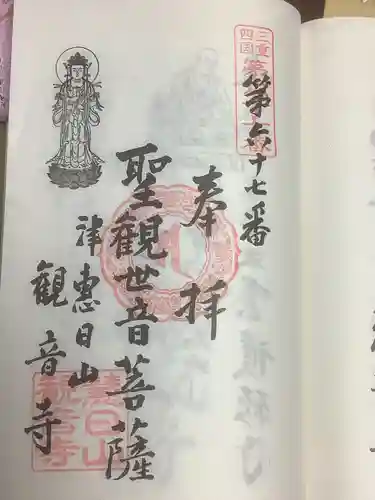 三重
四国
第六十七番
奉拝
聖観世音菩薩
津 恵日山
観音寺
恵日山
観音寺